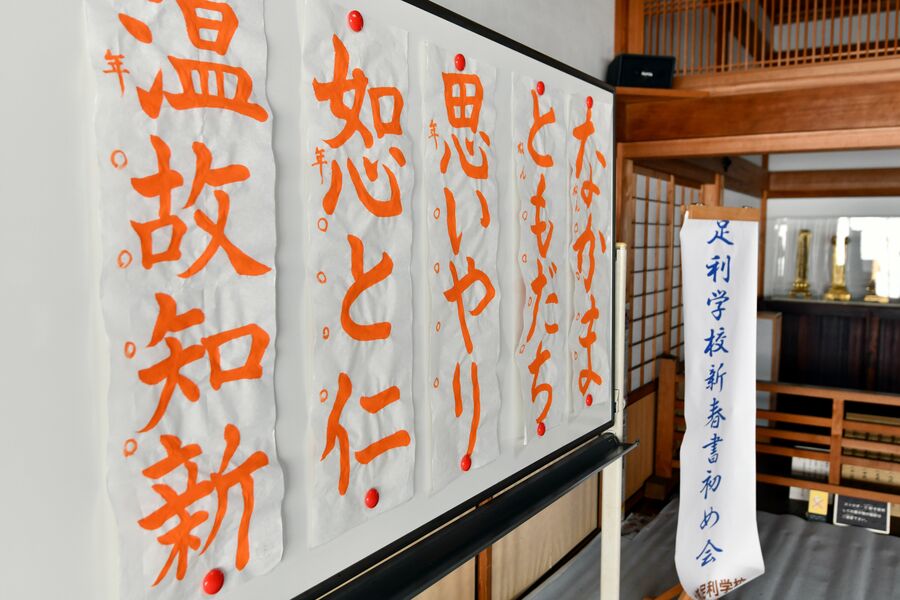 足利学校新春書初め会
足利学校
なかま
ねん
ともだち
ねん
思いやり
年
恕と仁
年
温故知新
年